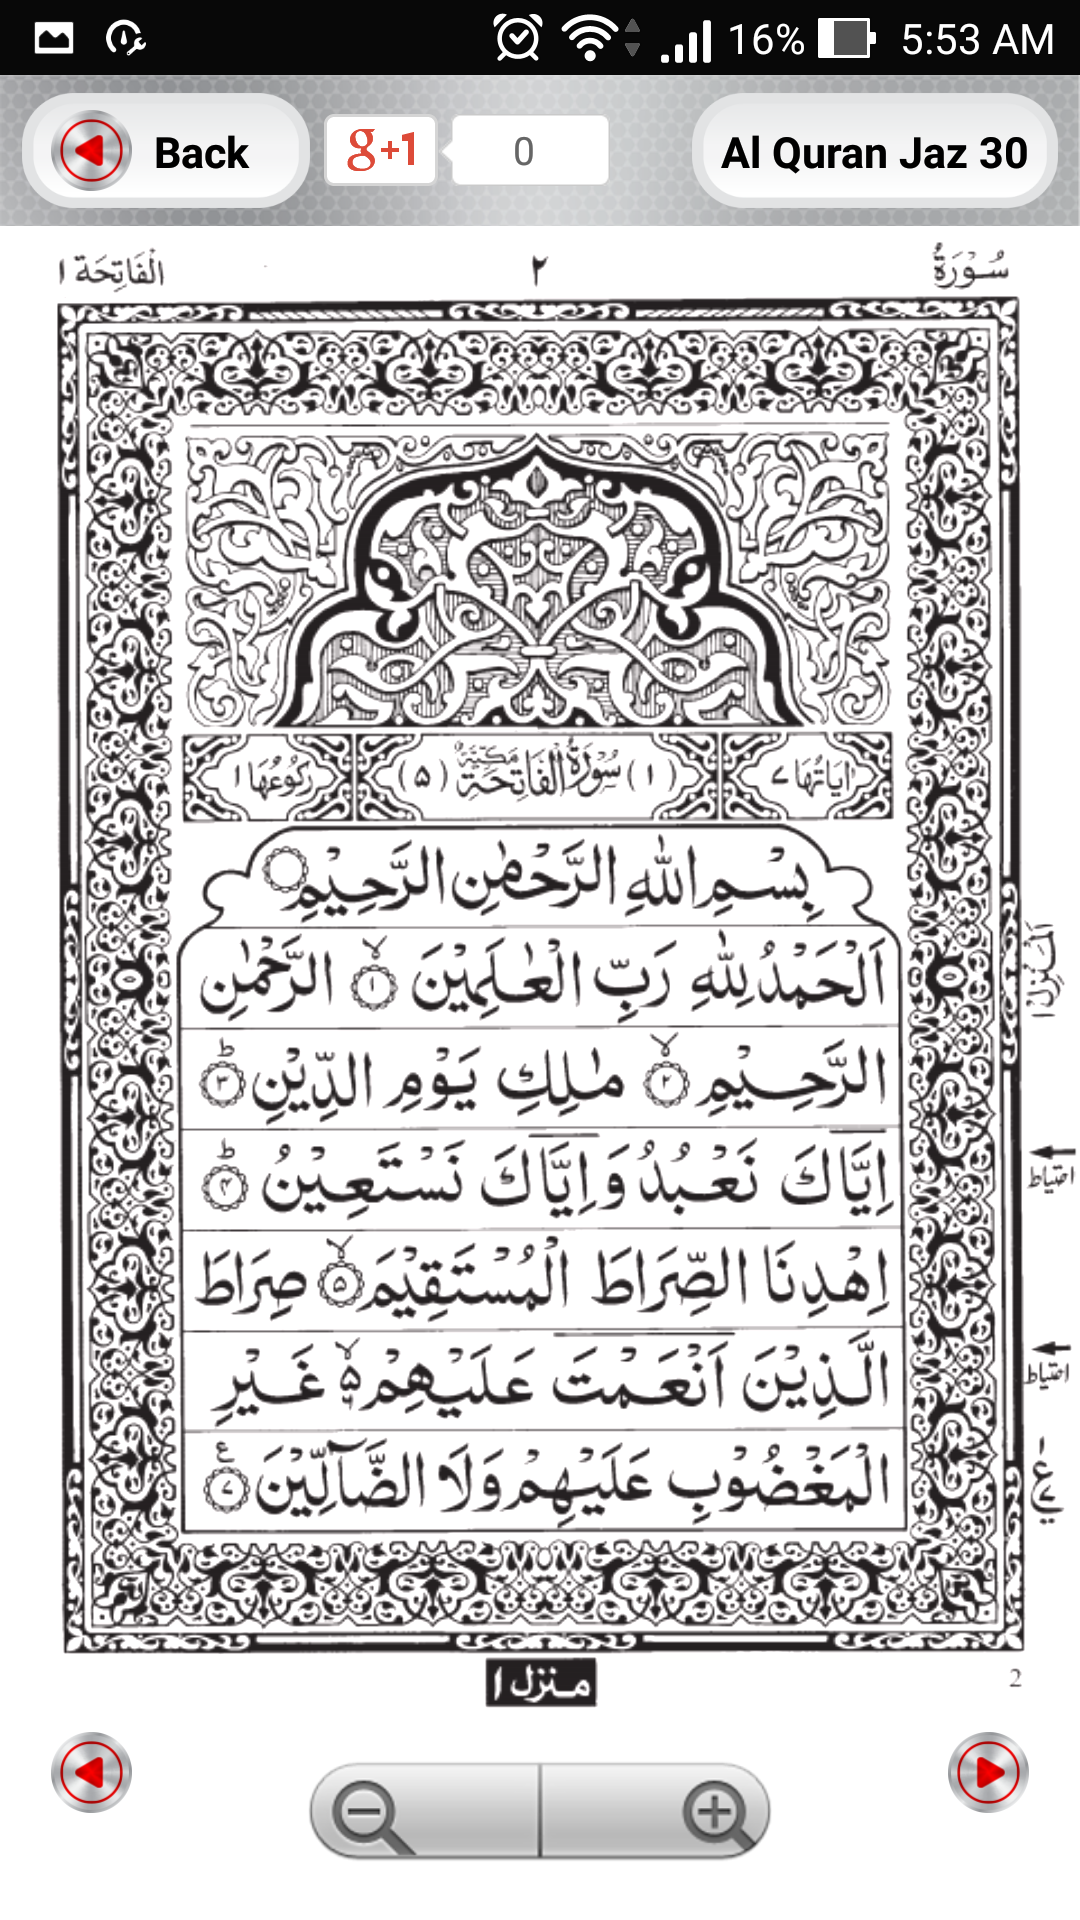 16% 5:53 AM
Back g+1 0 Al Quran Jaz 30
سُوْرَةُ ٢ الْفَاتِحَة ١
اٰيَاتُهَا ٧ (١) سُوْرَةُ الْفَاتِحَةِ مَكِّيَّةٌ (٥) رُكُوْعُهَا ١
بِسْمِ اللّٰهِ الرَّحْمٰنِ الرَّحِيْمِ
اَلْحَمْدُ لِلّٰهِ رَبِّ الْعٰلَمِيْنَ ۙ ١ الرَّحْمٰنِ
الرَّحِيْمِ ۙ ٢ مٰلِكِ يَوْمِ الدِّيْنِ ؕ ٣
اِيَّاكَ نَعْبُدُ وَاِيَّاكَ نَسْتَعِيْنُ ؕ ۴
اِهْدِنَا الصِّرَاطَ الْمُسْتَقِيْمَ ۙ ۵ صِرَاطَ
الَّذِيْنَ اَنْعَمْتَ عَلَيْهِمْ ۙ۬ غَيْرِ
الْمَغْضُوْبِ عَلَيْهِمْ وَلَا الضَّآلِّيْنَ ۧ ٧
احتياط
احتياط
ع
منزل ١
2